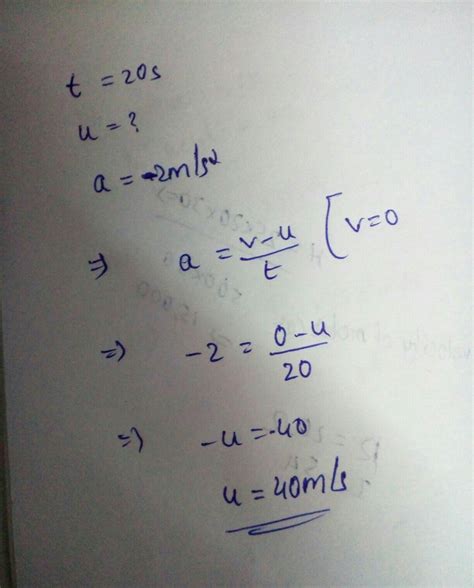 t = 20s
u = ?
a = -2m/s²
⇒ a = v-u/t [v=0
⇒ -2 = 0-u/20
⇒ -u = -40
u = 40m/s